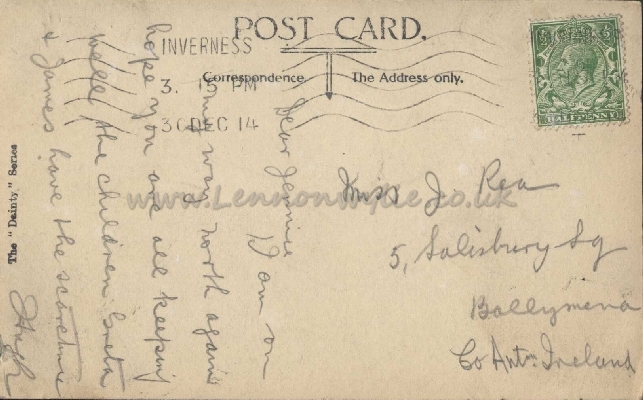 POST CARD.
INVERNESS
3. 15 PM
30 DEC 14
Correspondence.
The Address only.
HALFPENNY
Dear Jennie
I am on
my way north again
hope you are all keeping
well, the children Greta
& James have the scarletine
Hugh
Miss J. Rea
5, Salisbury Sq
Ballymena
Co Antm Ireland
The "Dainty" Series
www.LennonWylie.co.uk